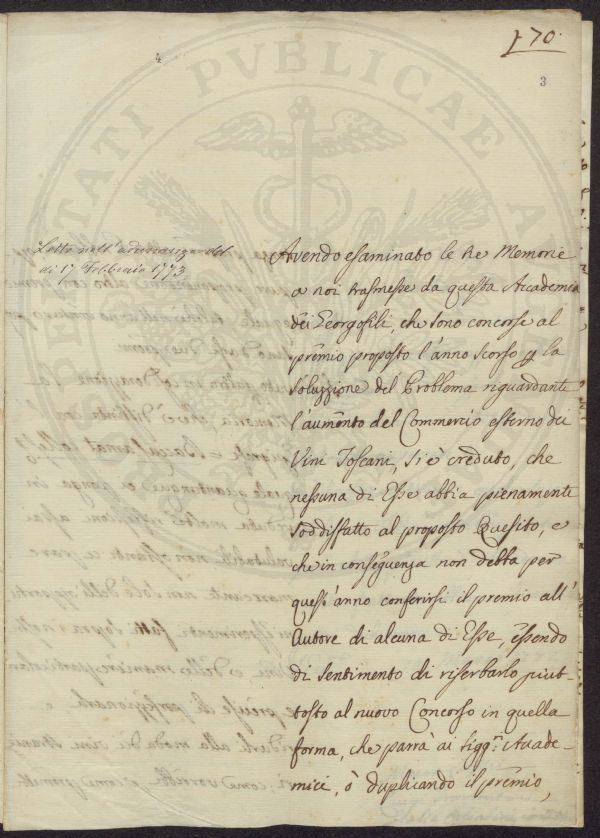 170.
4
3
PVBLICAE
Letto nell'adunanza del
dì 17 Febbraio 1773
Avendo esaminato le tre Memorie
a noi trasmesse da questa Accademia
dei Georgofili, che sono concorse al
premio proposto l'anno scorso p la
soluzzione del Problema riguardante
l'aumento del Commercio esterno dei
Vini Toscani, si è creduto, che
nessuna di Esse abbia pienamente
soddisfatto al proposto Quesito, e
che in conseguenza non debba per
quest'anno conferirsi il premio all'
Autore di alcuna di Esse, essendo
di sentimento di riserbarlo piut-
tosto al nuovo Concorso in quella
forma, che parrà ai Sigg.ri Accade-
mici, ò duplicando il premio,